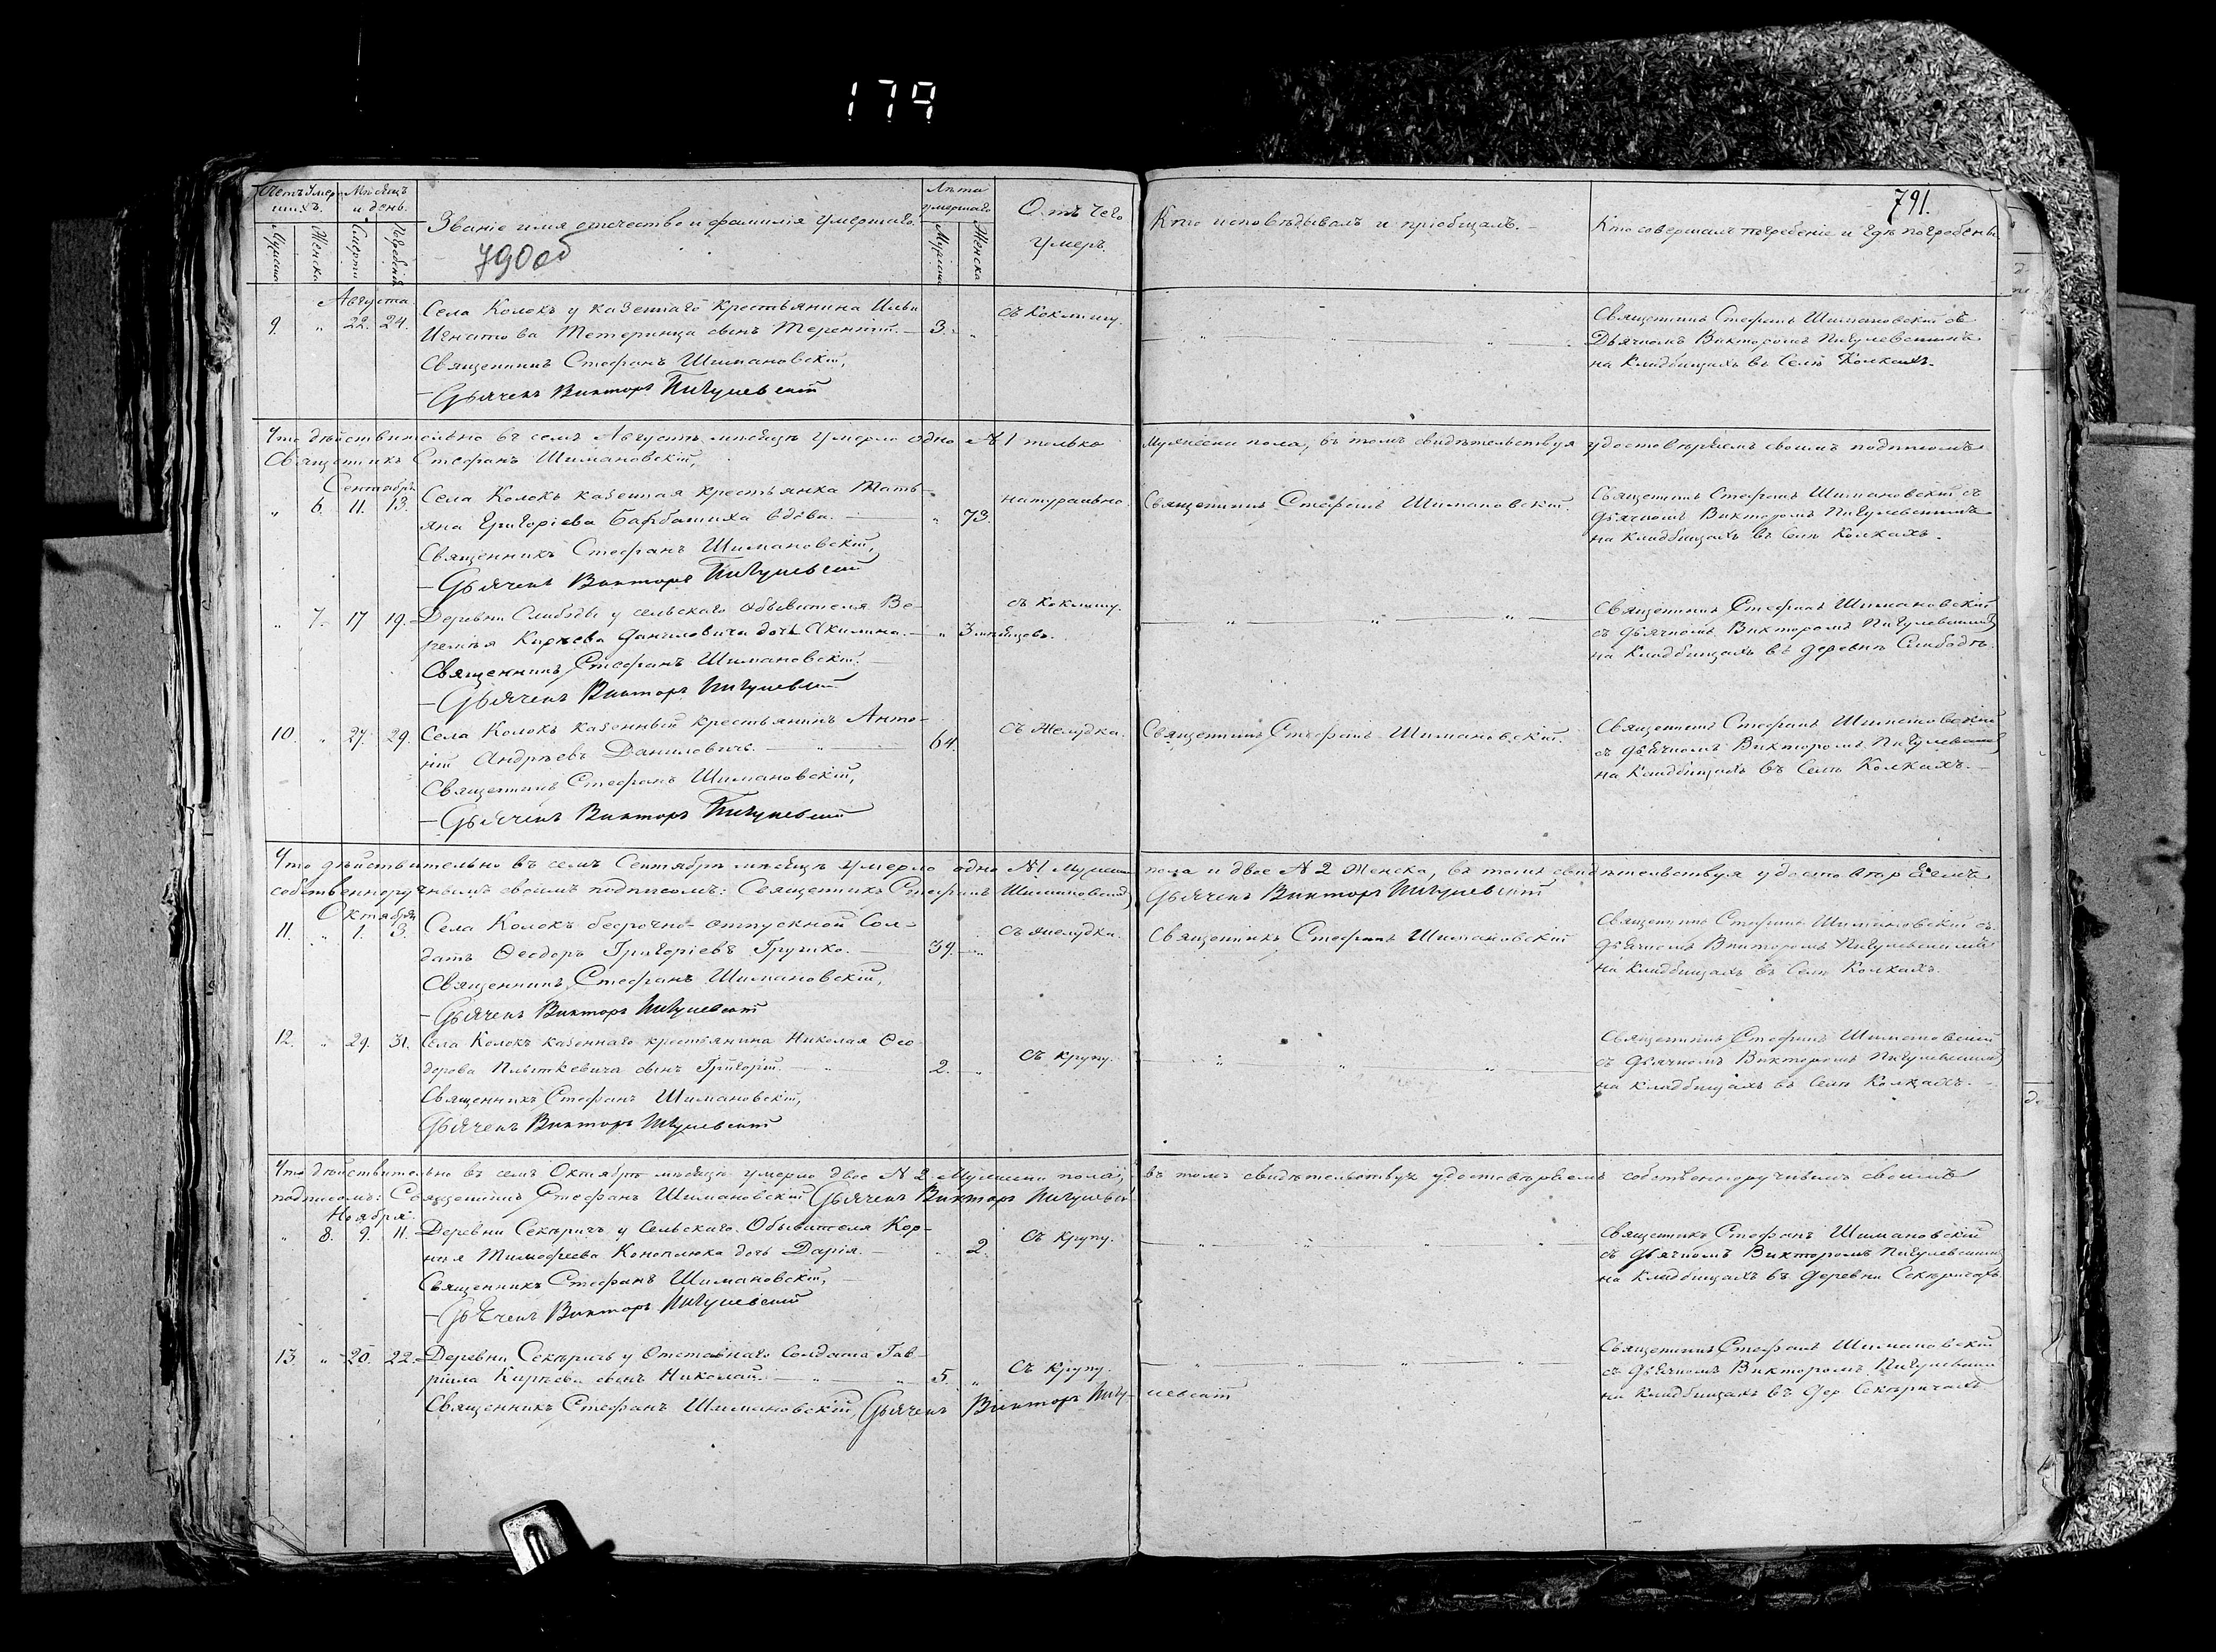 179
791.
Счетъ умер-
шихъ.
Мѣсяцъ
и день.
Званіе имя отечество и фамилія умершаго.
Лѣта
умершаго
Отъ чего
умеръ
Кто исповѣдывалъ и пріобщалъ. —
Кто совершалъ погребеніе и гдѣ погребены
Мужеска
Женска
Смерти
Погребенія
Мужеска
Женска
790об
Августа
9. " 22. 24. Села Колокъ у казеннаго крестьянина Ильи
Игнатова Тетеринца сынъ Терентій. — 3. "
съ Коклишу.
Священникъ Стефанъ Шимановскій съ
Дьячкомъ Викторомъ Пигулевскимъ
на кладбищахъ въ Селѣ Колкахъ.
Священникъ Стефанъ Шимановскій,
Дьячекъ Викторъ Пигулевскій
Что дѣйствительно въ семъ Августѣ мѣсяцѣ умерло одно № 1 только Мужеска пола, въ томъ свидѣтельствуя удостовѣряемъ своимъ подписомъ
Священникъ Стефанъ Шимановскій,
Сентябрь
" 6. 11. 13. Села Колокъ казенная крестьянка Тать-
яна Григоріева вдова. — " 73.
натурально.
Священникъ Стефанъ Шимановскій.
Священникъ Стефанъ Шимановскій съ
дьячкомъ Викторомъ Пигулевскимъ
на кладбищахъ въ Селѣ Колкахъ.
Священникъ Стефанъ Шимановскій,
— Дьячекъ Викторъ Пигулевскій
" 7. 17 19. Деревни Слободы у сельскаго обывателя Ве-
Даниловича дочь Акилина. — " 3 мѣсяцовъ.
съ Коклишу.
Священникъ Стефанъ Шимановскій
съ дьячкомъ Викторомъ Пигулевскимъ
на Кладбищахъ въ деревнѣ Слободѣ.
Священникъ Стефанъ Шимановскій. —
— Дьячекъ Викторъ Пигулевскій
10. " 27. 29. Села Колокъ казенный крестьянинъ Анто-
ній Андреевъ Даниловичъ. — " — 64.
Съ Желудка.
Священникъ Стефанъ Шимановскій.
Священникъ Стефанъ Шимановскій
съ дьячкомъ Викторомъ Пигулевскимъ
на Кладбищахъ въ Селѣ Колкахъ. —
Священникъ Стефанъ Шимановскій,
— Дьячекъ Викторъ Пигулевскій
Что дѣйствительно въ семъ Сентябрѣ мѣсяцѣ умерло одно №1 Мужеска пола и двое № 2 Женска, въ томъ свидѣтельствуя удостовѣряемъ
собственноручнымъ своимъ подписомъ: Священникъ Стефанъ Шимановскій Дьячекъ Викторъ Пигулевскій
Октября
11. " 1. 3. Села Колокъ безсрочно-отпускной Сол-
датъ Ѳеодоръ Григоріевъ Грушко. — 39. "
Съ желудка.
Священникъ Стефанъ Шимановскій
Священникъ Стефанъ Шимановскій съ
дьячкомъ Викторомъ Пигулевскимъ
на Кладбищахъ въ Селѣ Колкахъ.
Священникъ Стефанъ Шимановскій,
— Дьячекъ Викторъ Пигулевскій
12. " 29. 31. Села Колокъ казеннаго крестьянина Николая Ѳео-
дорова сынъ Григорій. — " 2. "
Съ крупу.
Священникъ Стефанъ Шимановскій
съ дьячкомъ Викторомъ Пигулевскимъ
на кладбищахъ въ Селѣ Колкахъ.
Священникъ Стефанъ Шимановскій,
Дьячекъ Викторъ Пигулевскій
Что дѣйствительно въ семъ Октябрѣ мѣсяцѣ умерло двое № 2 Мужеска пола, въ томъ свидѣтельствуя удостовѣряемъ собственноручнымъ своимъ
подписомъ: Священникъ Стефанъ Шимановскій Дьячекъ Викторъ Пигулевскій
Ноября
" 8. 9. 11. Деревни Секѣричъ у Сельскаго Обывателя Кор-
нія Тимофеева Коноплюка дочь Дарія. — " 2.
Съ крупу.
Священникъ Стефанъ Шимановскій
съ дьячкомъ Викторомъ Пигулевскимъ
на кладбищахъ въ деревни Секѣричахъ.
Священникъ Стефанъ Шимановскій, —
— Дьячекъ Викторъ Пигулевскій
13. " 20. 22. Деревни Секѣричъ у Отставнаго Солдата Гав-
ріила Кирѣева сынъ Николай. — " — 5. "
Съ крупу.
Священникъ Стефанъ Шимановскій
съ дьячкомъ Викторомъ Пигулевскимъ
на кладбищахъ въ дер. Секѣричахъ
Священникъ Стефанъ Шимановскій, Дьячекъ Викторъ Пигулевскій